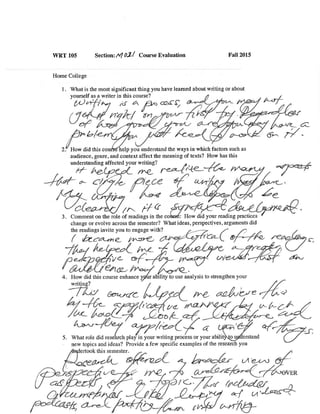 WRT 105 Section: M021 Course Evaluation Fall 2015
Home College
1. What is the most significant thing you have learned about writing or about
yourself as a writer in this course?
Writing is a process, and you may not
get it right on your first try. Regardless
of how good you are, if you have a
problem, you must need to work on it.
2. How did this course help you understand the ways in which factors such as
audience, genre, and context affect the meaning of texts? How has this
understanding affected your writing?
It helped me realize the many aspects
that a single piece of writing may have.
My writing have developed to be
clearer in its syntax development.
3. Comment on the role of readings in the course: How did your reading practices
change or evolve across the semester? What ideas, perspectives, arguments did
the readings invite you to engage with?
I became more analytical of the readings.
They helped me to develop a greater
perspective of the many views that an
audience may have.
4. How did this course enhance your ability to use analysis to strengthen your
writing?
This course helped me achieve this
by the specific manners by which
we had to look at literature and
how they applied to a variety of things.
5. What role did research play in your writing process or your ability to understand
new topics and ideas? Provide a few specific examples of the research you
undertook this semester.
Research offered a broader view of
perspective for me to understand the
OVER
aspects of a topic. This includes
circumstances like looking at videos,
podcasts, and putting them into writing.